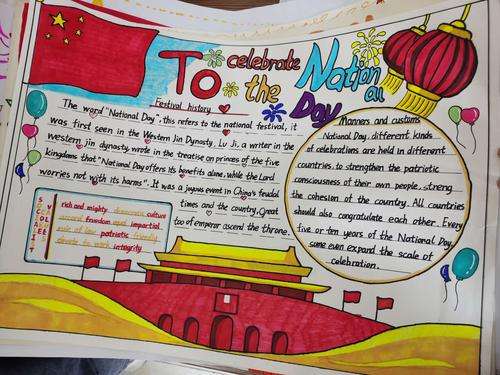 To celebrate the National Day
Festival history
The word "National Day", this refers to the national festival, it
was first seen in the Western Jin Dynasty, Lu Ji, a writer in the
western jin dynasty, wrote in the treatise on princes of the five
kingdoms that "National Day offers its benefits alone, while the Lord
worries not with its harms". It was a joyous event in China's feudal
times and the country, Great
too of emperor ascend the throne.
Manners and customs
National Day, different kinds
of celebrations are held in different
countries, to strengthen the patriotic
consciousness of their own people, streng
the cohesion of the country. All countries
should also congratulate each other. Every
five or ten years of the National Day,
some even expand the scale of
celebration.
rich and mighty democracy culture
accord freedom equal impartial
rule of law patriotic friendly
devote to work integrity